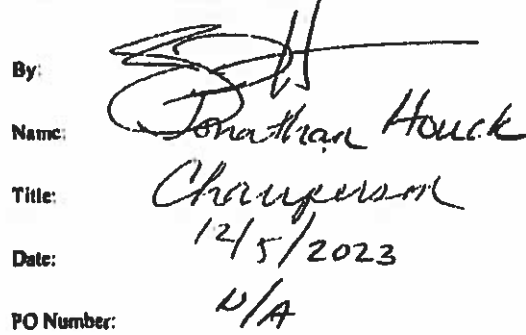 By:
Name: Jonathan Houck
Title: Chairperson
Date: 12/5/2023
PO Number: N/A